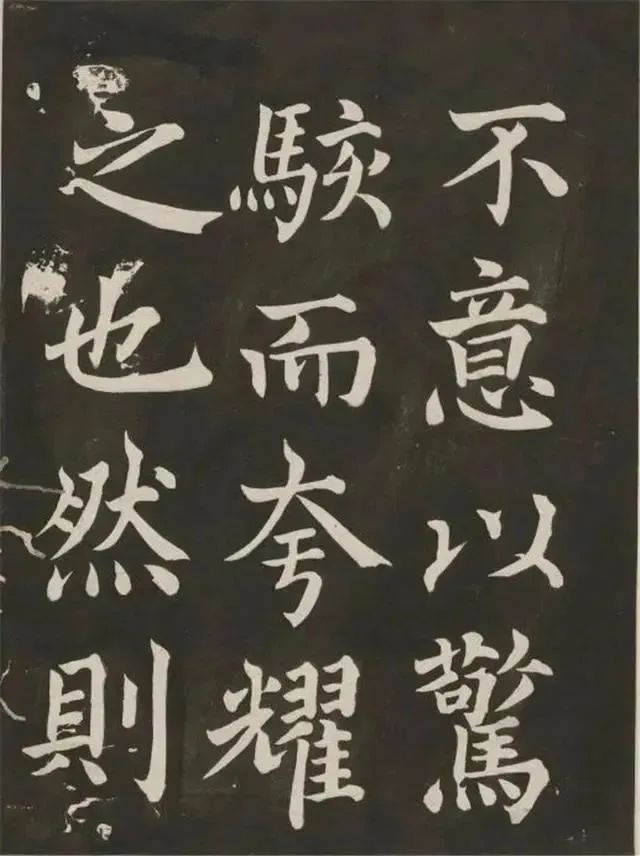 不意以驚
駭而夸耀
之也然則